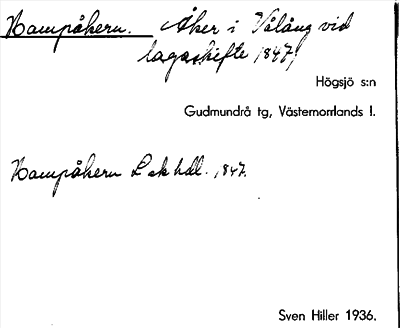 Kampåkern. Åker i Välång vid
lagaskifte 1847,
Högsjö s:n
Gudmundrå tg, Västernorrlands l.
Kampåkern L sk hdl. 1847.
Sven Hiller 1936.